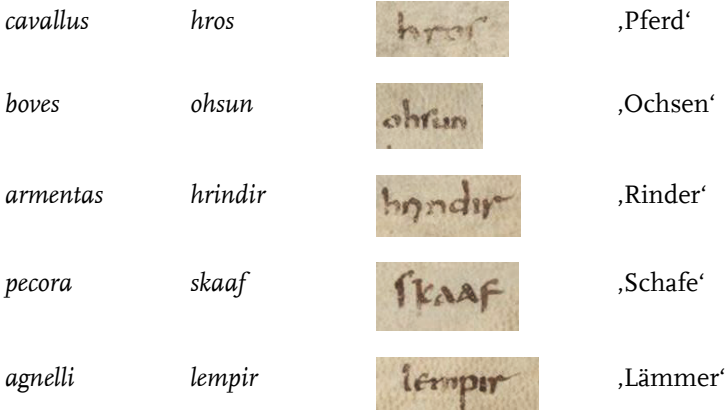 cavallus hros hros ‚Pferd‘
boves ohsun ohsun ‚Ochsen‘
armentas hrindir hrindir ‚Rinder‘
pecora skaaf skaaf ‚Schafe‘
agnelli lempir lempir ‚Lämmer‘